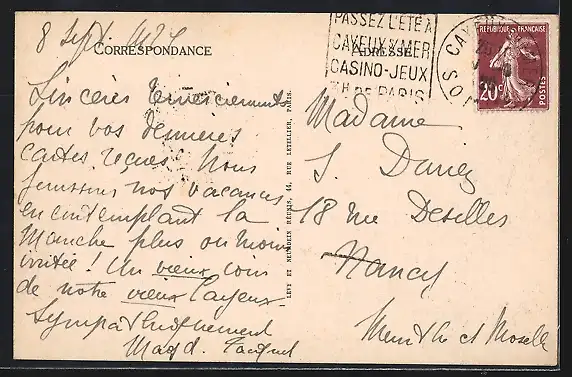 8 Sept.
CORRESPONDANCE
Sincères remerciements
pour vos dernières
cartes reçues. Nous
finissons nos vacances
en contemplant la
Manche plus ou moins
irritée! Un vieux coin
de notre vieux Cayeux
Sympathiquement
Magd.
LEVY ET NEURDEIN RÉUNIS, 44, RUE LETELLIER, PARIS.
PASSEZ L'ÉTÉ À
CAYEUX S/MER
CASINO-JEUX
DE PARIS
ADRESSE
CAYEUX
SOMME
RÉPUBLIQUE FRANÇAISE
20c
POSTES
Madame
J.
18 rue
Nancy
Meurthe et Moselle